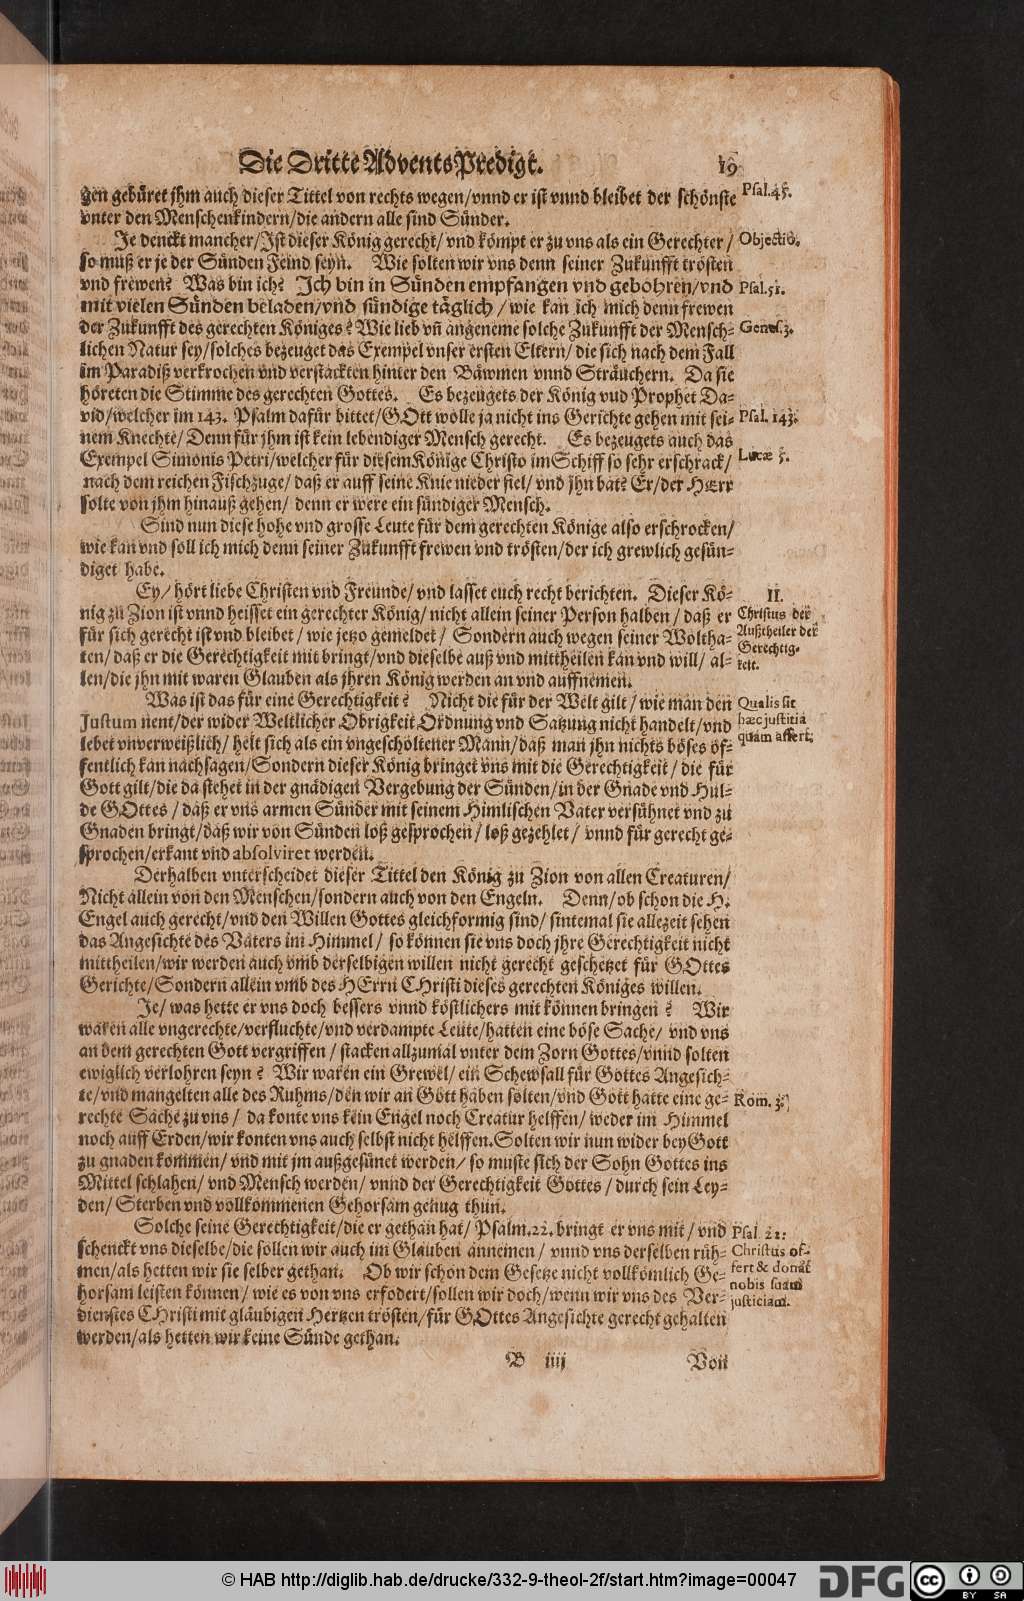 Die Dritte Advents Predigt. 19
gen gebüret jhm auch dieser Tittel von rechts wegen/vnnd er ist vnnd bleibet der schönste
vnter den Menschenkindern/die andern alle sind Sünder.
Psal. 45.
Je denckt mancher/Ist dieser König gerecht/ vnd kömpt er zu vns als ein Gerechter /
Objectio.
so muß er je der Sünden Feind seyn. Wie solten wir vns denn seiner Zukunfft trösten
vnd frewen? Was bin ich? Ich bin in Sünden empfangen vnd gebohren/vnd
Psal. 51.
mit vielen Sünden beladen/vnd sündige täglich / wie kan ich mich denn frewen
der Zukunfft des gerechten Königes? Wie lieb vñ angeneme solche Zukunfft der Mensch-
Genes. 3.
lichen Natur sey/solches bezeuget das Exempel vnser ersten Eltern/ die sich nach dem Fall
im Paradiß verkrochen vnd verstackten hinter den Bäwmen vnnd Sträuchern. Da sie
höreten die Stimme des gerechten Gottes. Es bezeugets der König vud Prophet Da-
vid/welcher im 143. Psalm dafür bittet/GOtt wölle ja nicht ins Gerichte gehen mit sei-
Psal. 143.
nem Knechte/ Denn für jhm ist kein lebendiger Mensch gerecht. Es bezeugets auch das
Exempel Simonis Petri/welcher für diesem Könige Christo im Schiff so sehr erschrack/
Lucæ 5.
nach dem reichen Fischzuge/ daß er auff seine Knie nieder fiel/ vnd jhn bat? Er/der HErr
solte von jhm hinauß gehen/ denn er were ein sündiger Mensch.
Sind nun diese hohe vnd grosse Leute für dem gerechten Könige also erschrocken/
wie kan vnd soll ich mich denn seiner Zukunfft frewen vnd trösten/der ich grewlich gesün-
diget habe.
Ey/ hört liebe Christen vnd Freunde/ vnd lasset euch recht berichten. Dieser Kö-
II.
nig zu Zion ist vnnd heisset ein gerechter König/ nicht allein seiner Person halben/ daß er
für sich gerecht ist vnd bleibet/ wie jetzo gemeldet/ Sondern auch wegen seiner Woltha-
ten/ daß er die Gerechtigkeit mit bringt/vnd dieselbe auß vnd mittheilen kan vnd will/ al-
len/die jhn mit waren Glauben als jhren König werden an vnd auffnemen.
Christus der
Außtheiler der
Gerechtig-
keit.
Was ist das für eine Gerechtigkeit? Nicht die für der Welt gilt/ wie man den
Justum nent/der wider Weltlicher Obrigkeit Ordnung vnd Satzung nicht handelt/vnd
lebet vnverweißlich/ helt sich als ein vngescholtener Mann/daß man jhn nichts böses öf-
Qualis sit
hæc justitia
quam affert.
fentlich kan nachsagen/Sondern dieser König bringet vns mit die Gerechtigkeit/ die für
Gott gilt/die da stehet in der gnädigen Vergebung der Sünden/in der Gnade vnd Hul-
de GOttes / daß er vns armen Sünder mit seinem Himlischen Vater versühnet vnd zu
Gnaden bringt/daß wir von Sünden loß gesprochen/ loß gezehlet/ vnnd für gerecht ge-
sprochen/erkant vnd absolviret werden.
Derhalben vnterscheidet dieser Tittel den König zu Zion von allen Creaturen/
Nicht allein von den Menschen/sondern auch von den Engeln. Denn/ob schon die H.
Engel auch gerecht/vnd den Willen Gottes gleichformig sind/ sintemal sie allezeit sehen
das Angesichte des Vaters im Himmel/ so können sie vns doch jhre Gerechtigkeit nicht
mittheilen/wir werden auch vmb derselbigen willen nicht gerecht geschetzet für GOttes
Gerichte/Sondern allein vmb des HErrn CHristi dieses gerechten Königes willen.
Je/ was hette er vns doch bessers vnnd köstlichers mit können bringen? Wir
waren alle vngerechte/verfluchte/vnd verdampte Leute/hatten eine böse Sache/ vnd vns
an dem gerechten Gott vergriffen / stacken allzumal vnter dem Zorn Gottes/vnnd solten
ewiglich verlohren seyn? Wir waren ein Grewel/ ein Schewsall für Gottes Angesich-
te/vnd mangelten alle des Ruhms/den wir an Gott haben solten/vnd Gott hatte eine ge-
Rom. 3.
rechte Sache zu vns/ da konte vns kein Engel noch Creatur helffen/ weder im Himmel
noch auff Erden/wir konten vns auch selbst nicht helffen. Solten wir nun wider bey Gott
zu gnaden kommen/ vnd mit jm außgesünet werden/ so muste sich der Sohn Gottes ins
Mittel schlahen/ vnd Mensch werden/ vnnd der Gerechtigkeit Gottes / durch sein Ley-
den/ Sterben vnd vollkommenen Gehorsam genug thun.
Solche seine Gerechtigkeit/die er gethan hat/ Psalm. 22. bringt er vns mit/ vnd
schenckt vns dieselbe/die sollen wir auch im Glauben annemen/ vnnd vns derselben rüh-
men/als hetten wir sie selber gethan. Ob wir schon dem Gesetze nicht vollkömlich Ge-
horsam leisten können/ wie es von vns erfodert/sollen wir doch/wenn wir vns des Ver-
Psal. 22.
Christus of-
fert & donat
nobis suam
justiciam.
dienstes CHristi mit gläubigen Hertzen trösten/für GOttes Angesichte gerecht gehalten
werden/als hetten wir keine Sünde gethan.
B iiij Von
© HAB http://diglib.hab.de/drucke/332-9-theol-2f/start.htm?image=00047
DFG
cc BY SA